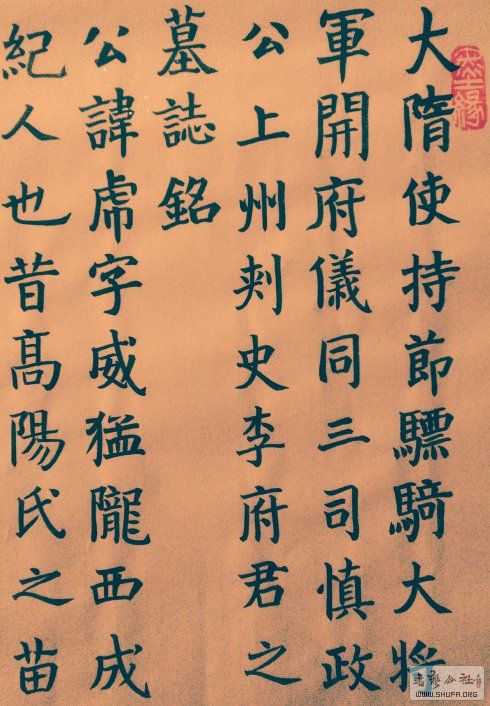 大隋使持節驃騎大將
軍開府儀同三司慎政
公上州刾史李府君之
墓誌銘
公諱虎字威猛隴西成
紀人也昔髙陽氏之苗
WWW.SHUFA.ORG